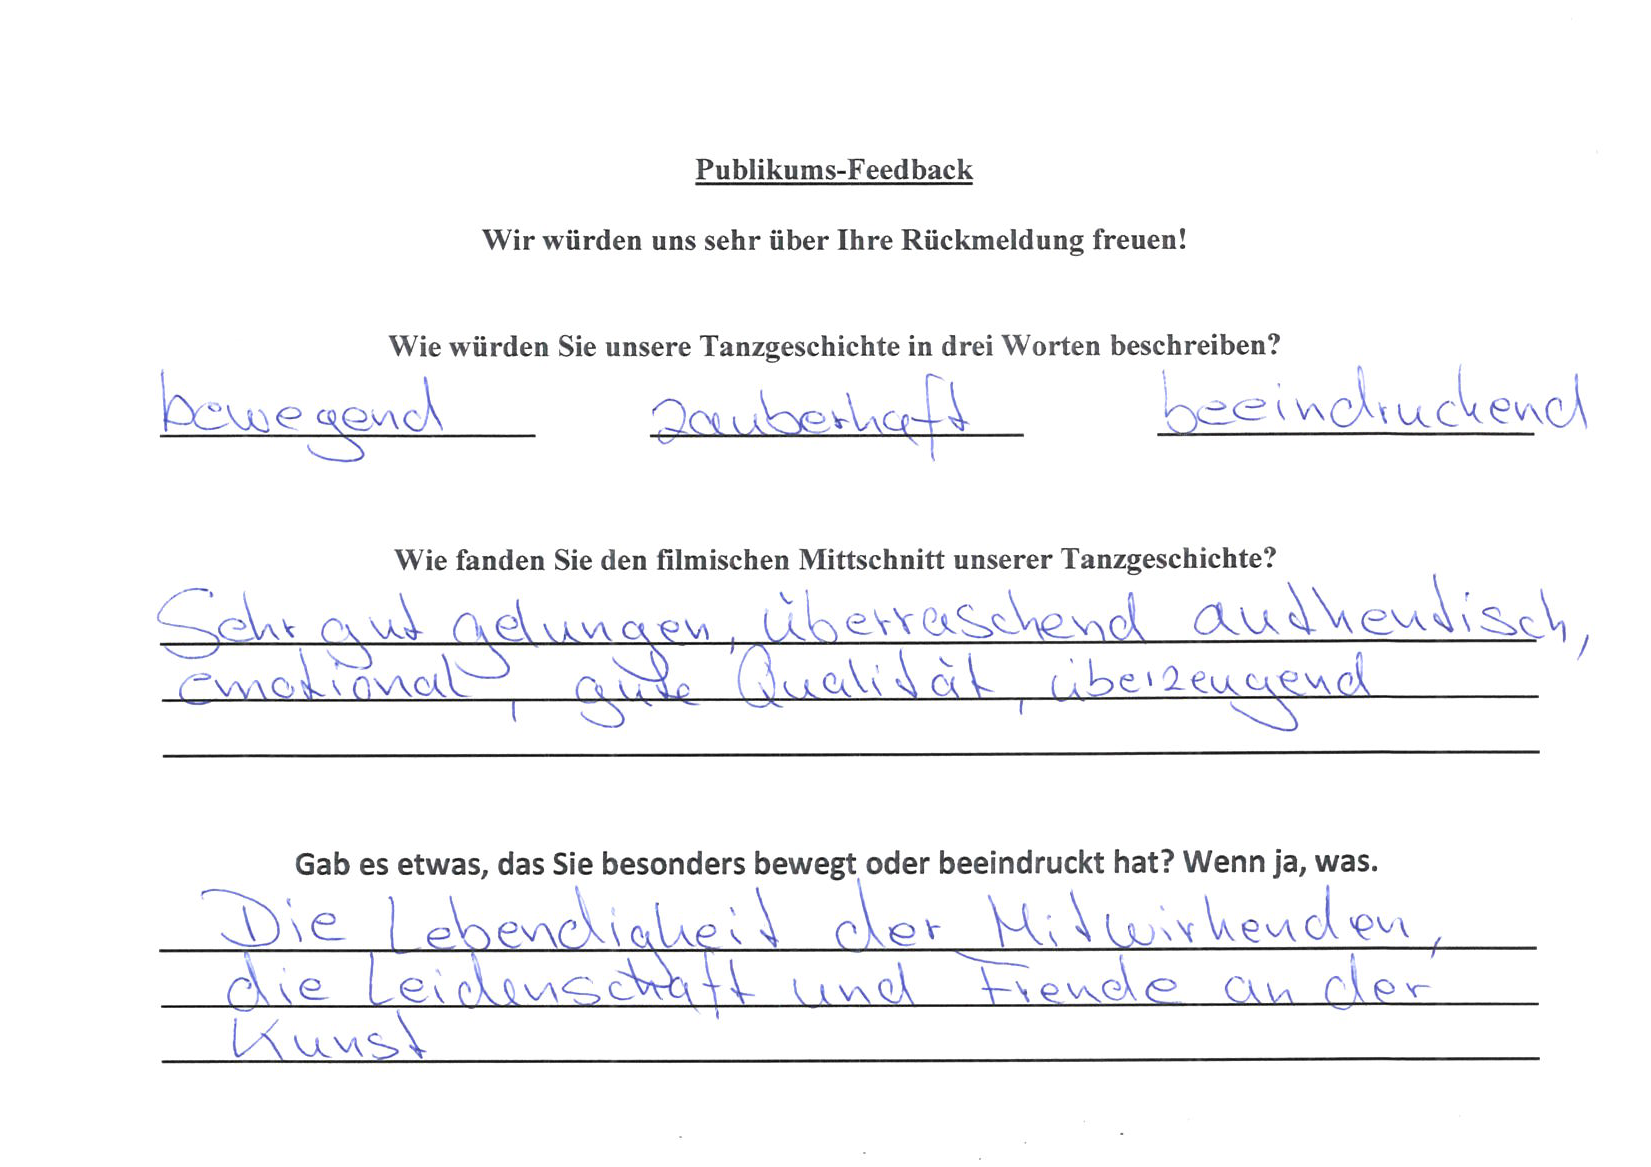 Publikums-Feedback
Wir würden uns sehr über Ihre Rückmeldung freuen!
Wie würden Sie unsere Tanzgeschichte in drei Worten beschreiben?
bewegend zauberhaft beeindruckend
Wie fanden Sie den filmischen Mittschnitt unserer Tanzgeschichte?
Sehr gut gelungen, überraschend authentisch,
emotional, gute Qualität, überzeugend
Gab es etwas, das Sie besonders bewegt oder beeindruckt hat? Wenn ja, was.
Die Lebendigkeit der Mitwirkenden,
die Leidenschaft und Freude an der
Kunst